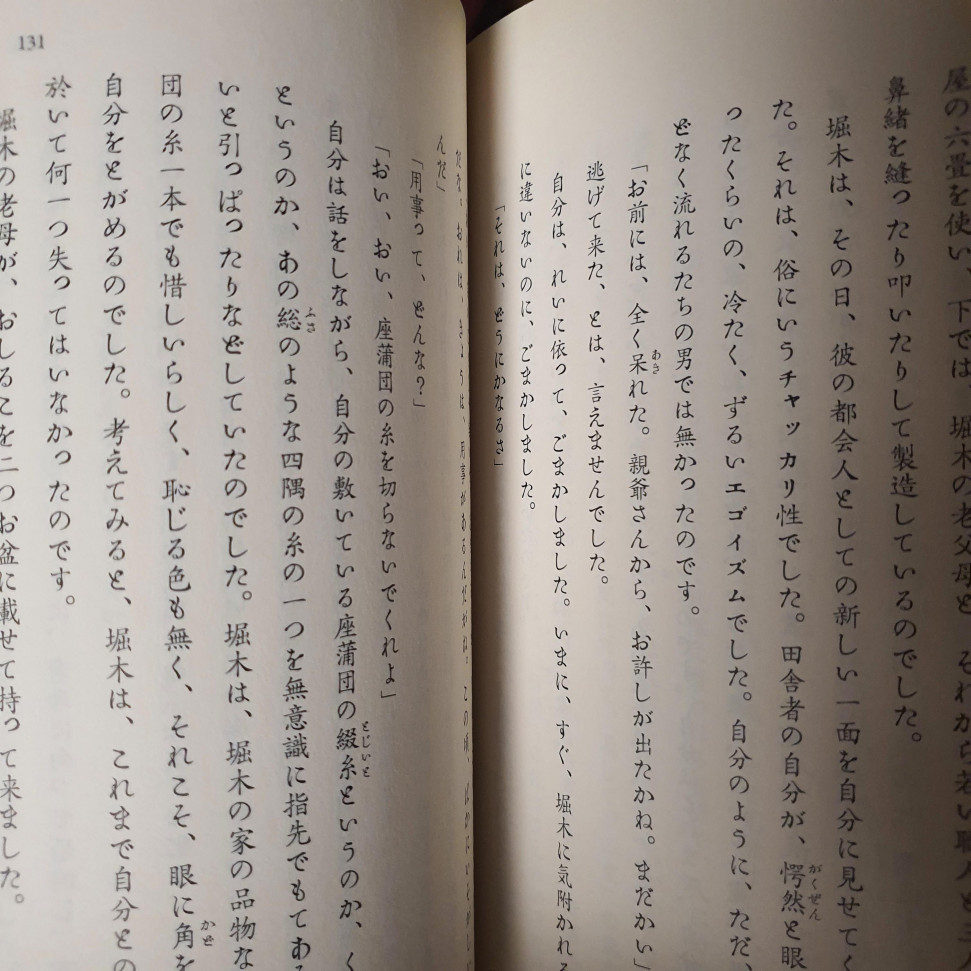 屋の六畳を使い、下では、堀木の老父母と、それから若い職人と
鼻緒を縫ったり叩いたりして製造しているのでした。
堀木は、その日、彼の都会人としての新しい一面を自分に見せてく
た。それは、俗にいうチャッカリ性でした。田舎者の自分が、愕然と眼
ったくらいの、冷たく、ずるいエゴイズムでした。自分のように、ただ、
どなく流れるたちの男では無かったのです。
「お前には、全く呆れた。親爺さんから、お許しが出たかね。まだかい」
逃げて来た、とは、言えませんでした。
自分は、れいに依って、ごまかしました。いまに、すぐ、堀木に気附かれる
に違いないのに、ごまかしました。
「それは、どうにかなるさ」
131
だな。おれは、きょうは、用事があるんだがね。この頃、ばかにいそがし
んだ」
「用事って、どんな?」
「おい、おい、座蒲団の糸を切らないでくれよ」
自分は話をしながら、自分の敷いている座蒲団の綴糸というのか、く
というのか、あの総のような四隅の糸の一つを無意識に指先でもてあ
いと引っぱったりなどしていたのでした。堀木は、堀木の家の品物な
団の糸一本でも惜しいらしく、恥じる色も無く、それこそ、眼に角を
自分をとがめるのでした。考えてみると、堀木は、これまで自分との
於いて何一つ失ってはいなかったのです。
堀木の老母が、おしるこを二つお盆に載せて持って来ました。